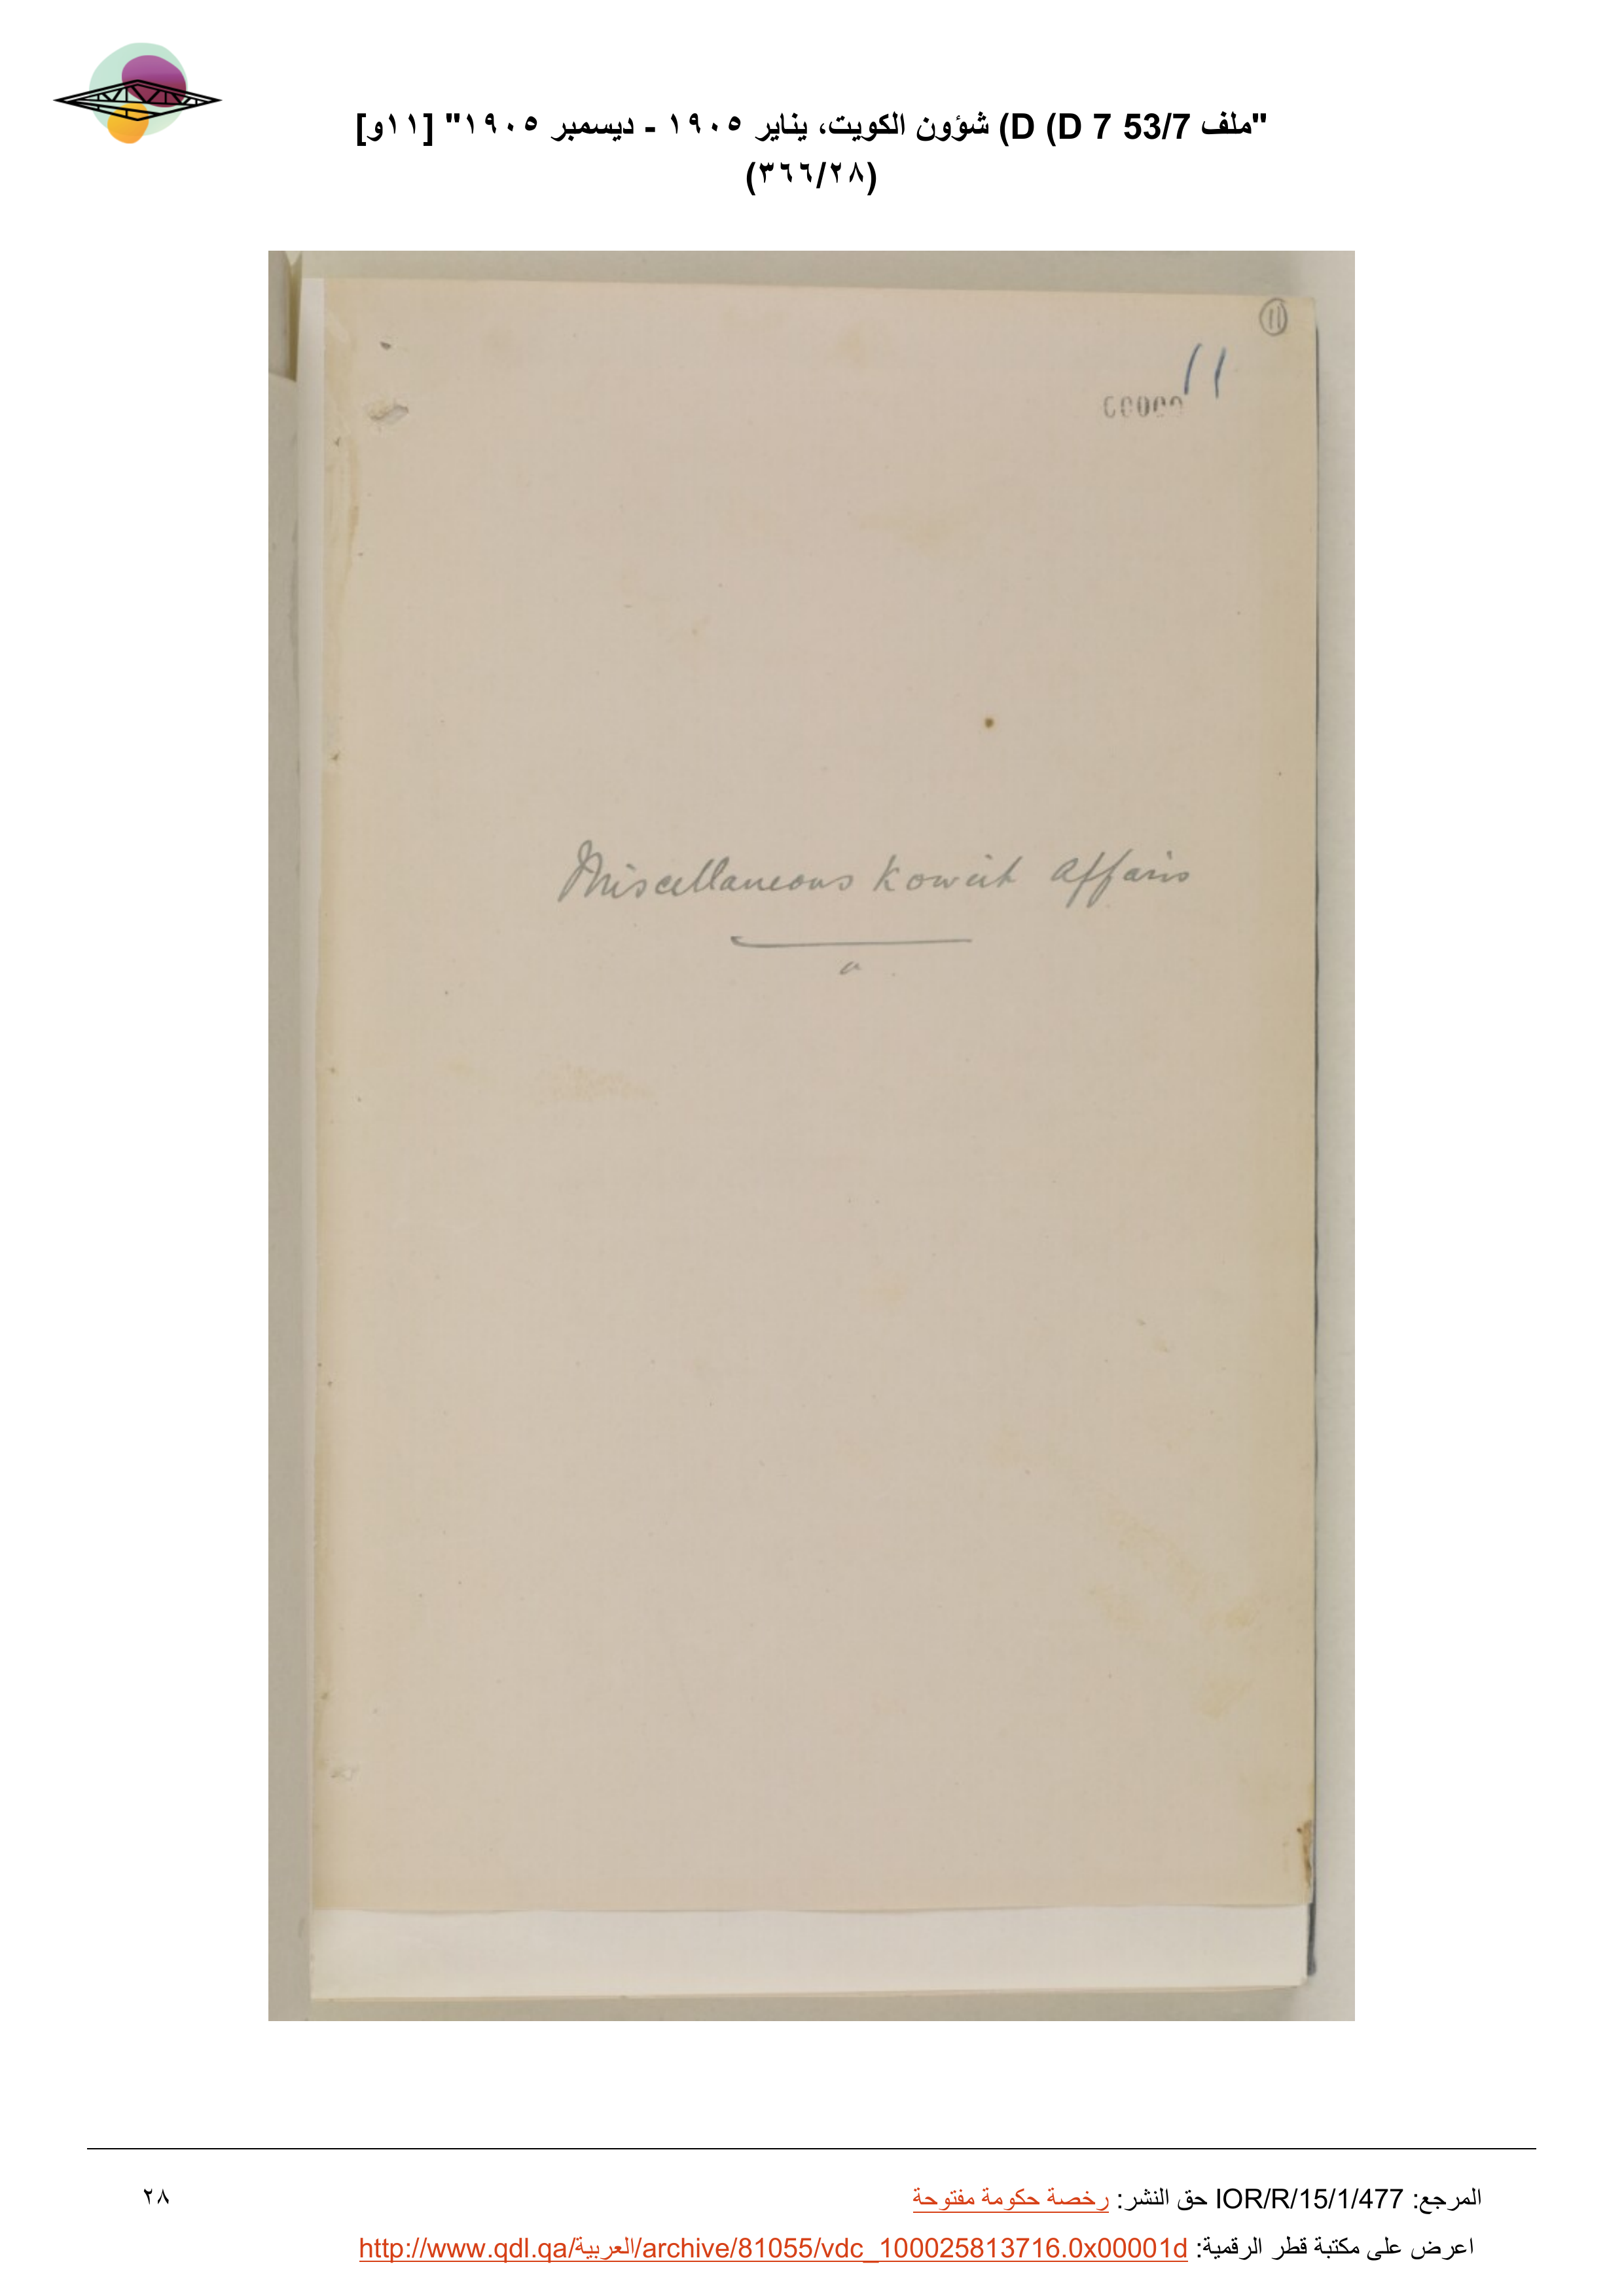 "ملف 53/7 D 7 D) D) شؤون الكويت، يناير ١٩٠٥ - ديسمبر ١٩٠٥" [١١و]
(٣٦٦/٢٨)
11
11
Miscellaneous Koweit Affairs
المرجع: IOR/R/15/1/477 حق النشر: رخصة حكومة مفتوحة
٢٨
اعرض على مكتبة قطر الرقمية: http://www.qdl.qa/العربية/archive/81055/vdc_100025813716.0x00001d